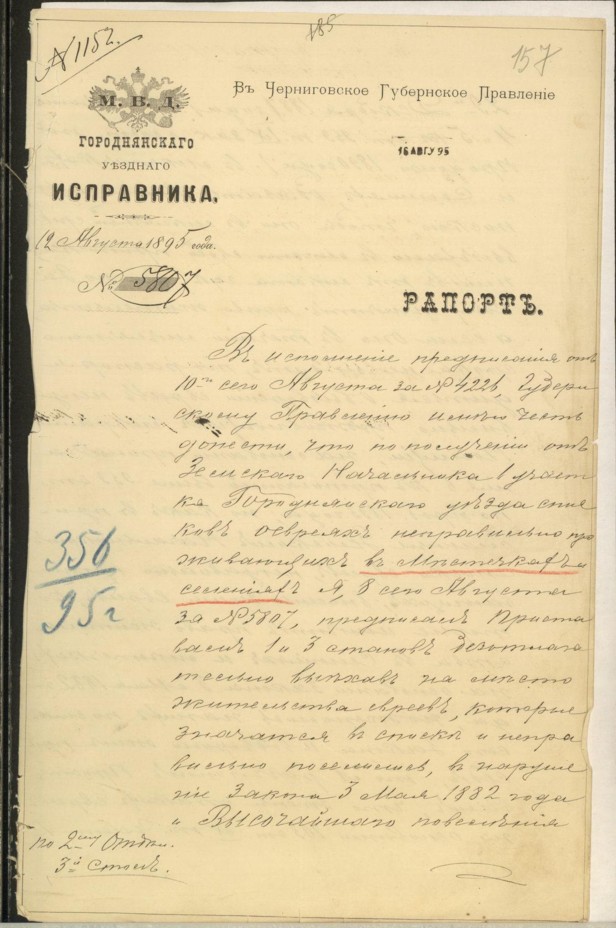 185
№ 1152.
157
М. В. Д.
ГОРОДНЯНСКАГО
УѢЗДНАГО
ИСПРАВНИКА,
12 Августа 1895 года.
№ 5807
Въ Черниговское Губернское Правленіе
16 АВГУ 95
РАПОРТЪ.
Въ исполненіе предписанія отъ
10го сего Августа за № 4221, Губерн
скому Правленію имѣю честь
донести, что по полученіи отъ
Земскаго Начальника 1 участ
ка Городнянскаго уѣзда спис
ковъ о евреяхъ неправильно про
живающихъ въ мѣстечкахъ и
селеніяхъ я, 8 сего Августа
за № 5807, предписалъ Приста
вамъ 1 и 3 становъ безотлага
тельно выѣхавъ на мѣсто
жительства евреевъ, которые
значатся въ спискѣ и непра
вильно поселились, въ наруше
ніи Закона 3 Мая 1882 года
и Высочайшаго повелѣнія
356
95 г
по 2му Отдѣл.
3й столъ.